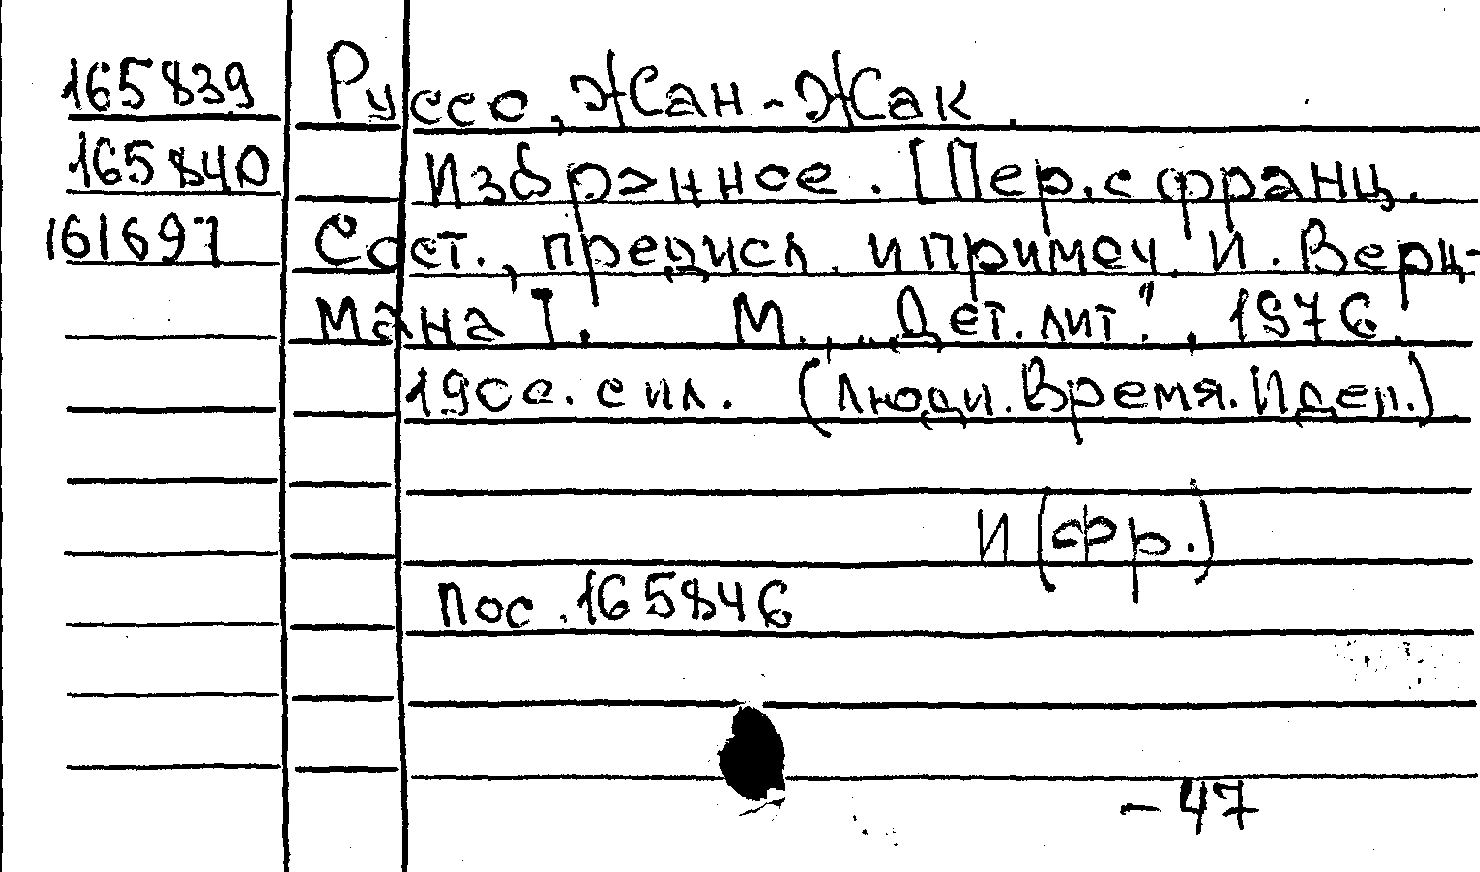 165839 Руссо, Жан-Жак.
165840 Избранное. [Пер. с франц.
161697 Сост., предисл. и примеч. И. Верц-
мана]. М., „Дет. лит.", 1976.
190 с. с ил. (Люди. Время. Идеи.)
И (фр.)
пос. 165846
- 47